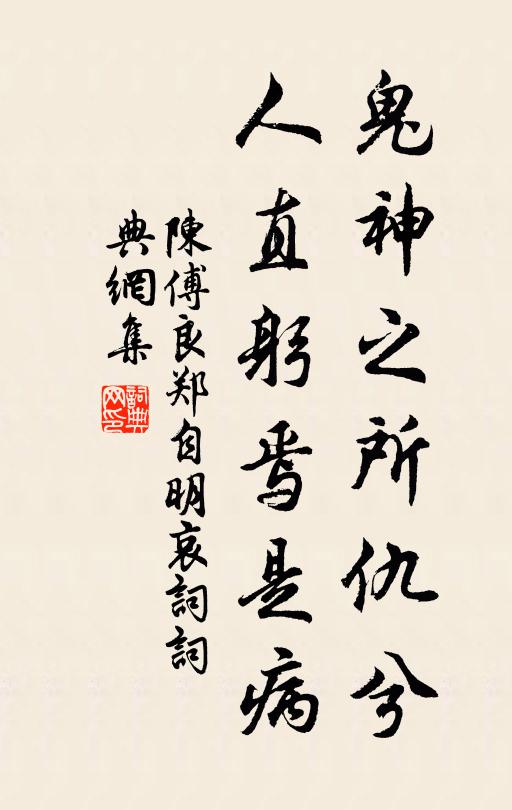 鬼神之所仇兮
人直躬焉是病
陳傅良郑自明哀詞詞
典網集
詞典
网印